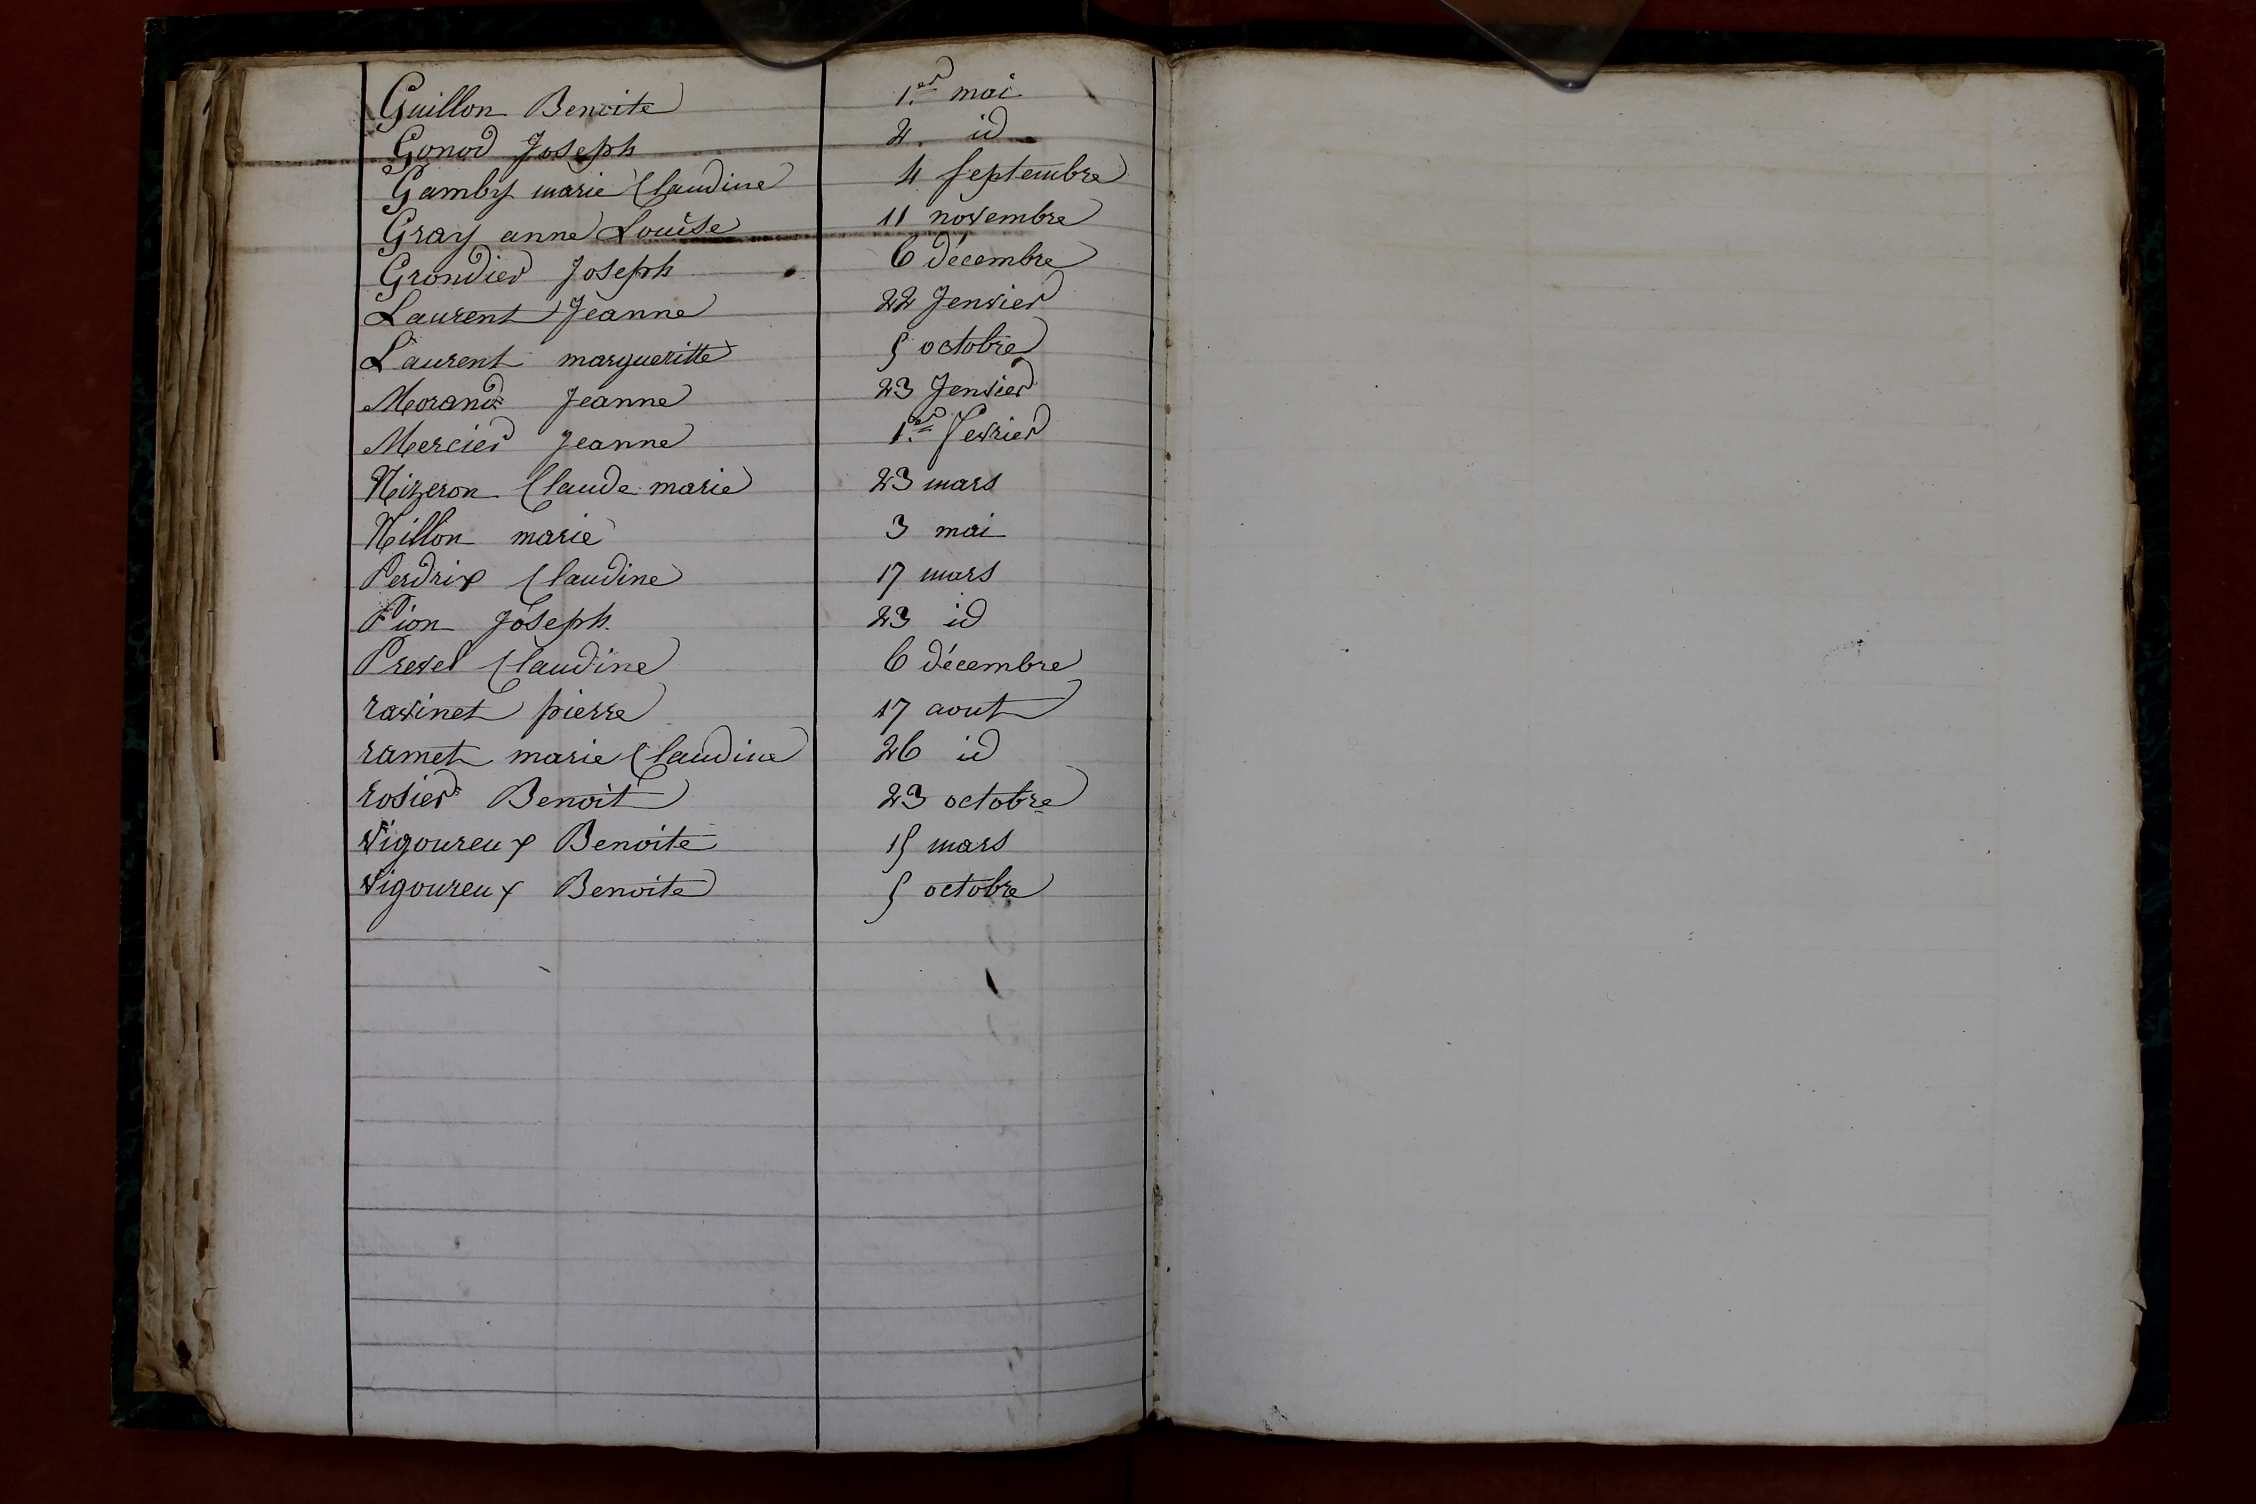 Guillon Benoite 1.er mai
Gonod Joseph 2. id
Gamby marie Claudine 4 septembre
Gray anne Louise 11 novembre
Grondier Joseph 6 décembre
Laurent Jeanne 22 Jenvier
Laurent margueritte 5 octobre
Morand Jeanne 23 Jenvier
Mercier Jeanne 1.er Fevrier
Nizeron Claude marie 23 mars
Nillon marie 3 mai
Perdrix Claudine 17 mars
Pion Joseph 23 id
Prevel Claudine 6 décembre
ravinet pierre 17 aout
ramet marie Claudine 26 id
rosier Benoit 23 octobre
Vigoureux Benoite 15 mars
Vigoureux Benoite 5 octobre